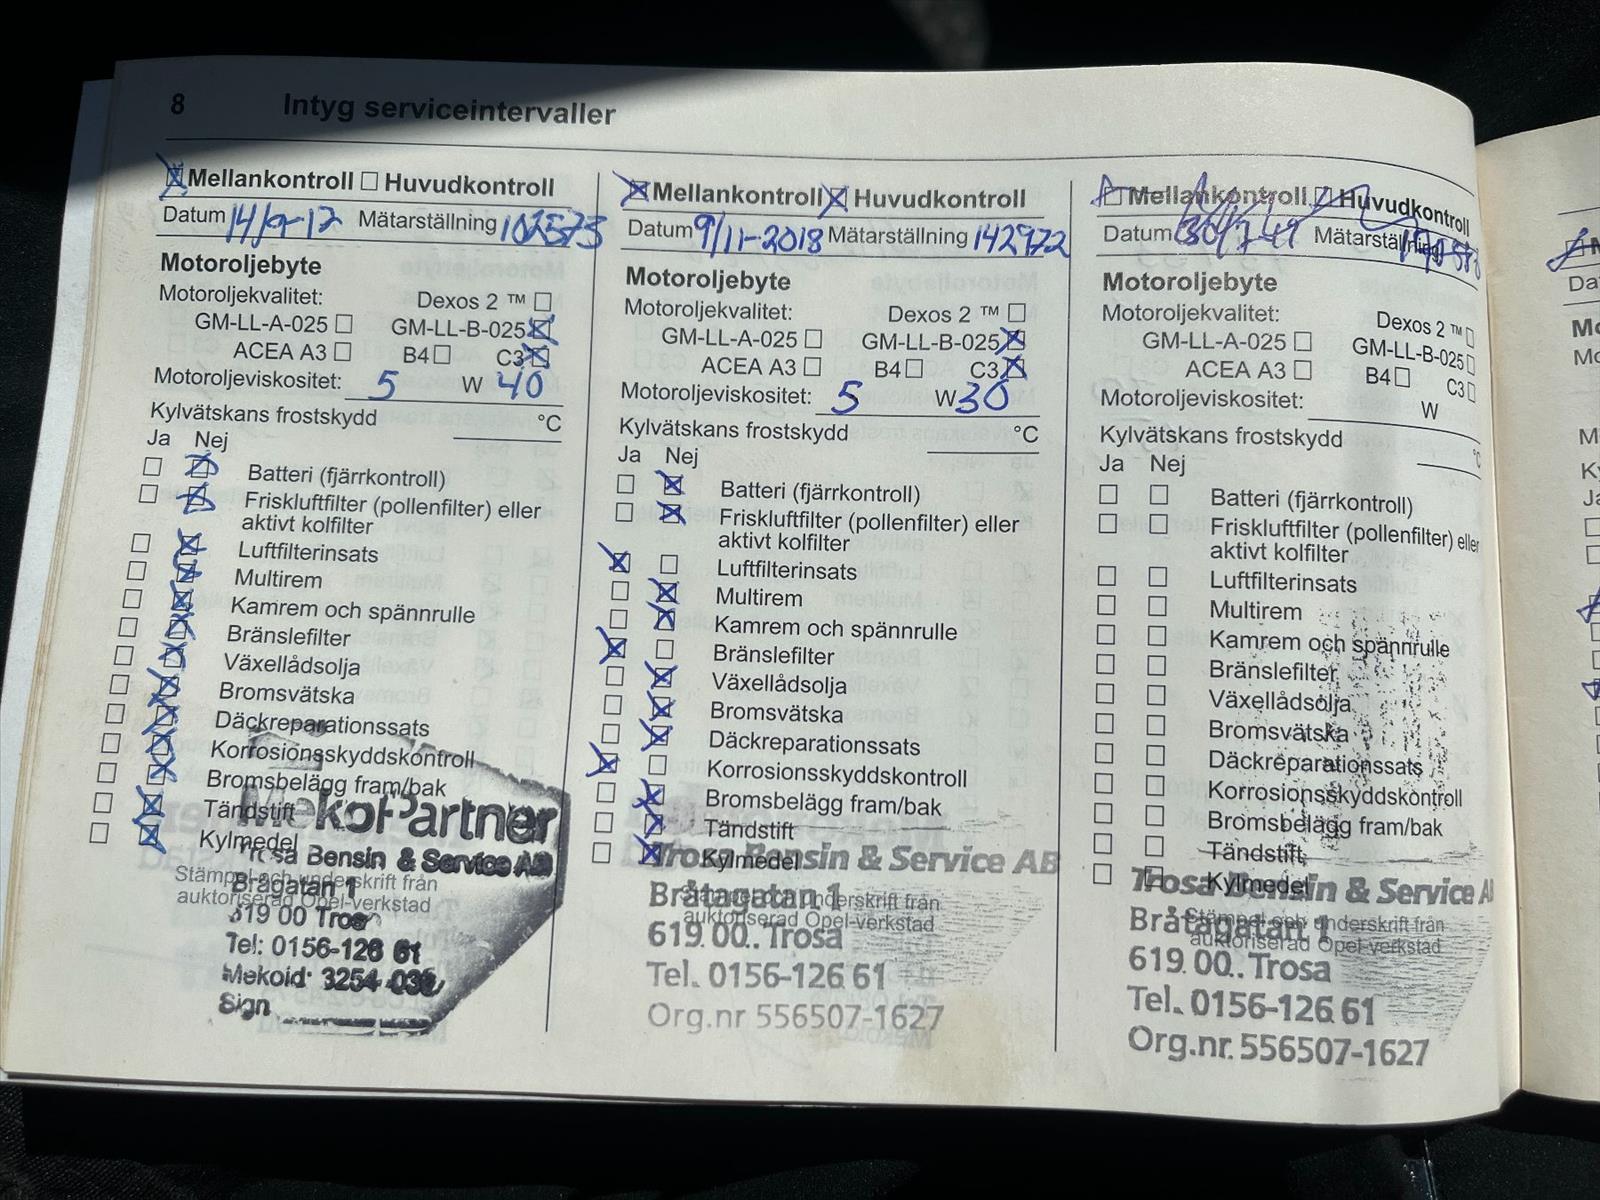 8 Intyg serviceintervaller
Mellankontroll Huvudkontroll
Datum 14/9-17 Mätarställning 102573
Motoroljebyte
Motoroljekvalitet: Dexos 2 ™
GM-LL-A-025 GM-LL-B-025
ACEA A3 B4 C3
Motoroljeviskositet: 5 W 40
Kylvätskans frostskydd °C
Ja Nej
Batteri (fjärrkontroll)
Friskluftfilter (pollenfilter) eller
aktivt kolfilter
Luftfilterinsats
Multirem
Kamrem och spännrulle
Bränslefilter
Växellådsolja
Bromsvätska
Däckreparationssats
Korrosionsskyddskontroll
Bromsbelägg fram/bak
Tändstift
Kylmedel
MekoPartner
Trosa Bensin & Service AB
Stämpel och underskrift från
auktoriserad Opel-verkstad
619 00 Trosa
Tel: 0156-126 61
Mekoid:
Sign
Mellankontroll Huvudkontroll
Datum 9/11-2018 Mätarställning 142972
Motoroljebyte
Motoroljekvalitet: Dexos 2 ™
GM-LL-A-025 GM-LL-B-025
ACEA A3 B4 C3
Motoroljeviskositet: 5 W 30
Kylvätskans frostskydd °C
Ja Nej
Batteri (fjärrkontroll)
Friskluftfilter (pollenfilter) eller
aktivt kolfilter
Luftfilterinsats
Multirem
Kamrem och spännrulle
Bränslefilter
Växellådsolja
Bromsvätska
Däckreparationssats
Korrosionsskyddskontroll
Bromsbelägg fram/bak
Tändstift
Kylmedel
Trosa Bensin & Service AB
Bråtagatan 1
Stämpel och underskrift från
auktoriserad Opel-verkstad
619 00.. Trosa
Tel. 0156-126 61
Org.nr 556507-1627
Mellankontroll Huvudkontroll
Datum Mätarställning
Motoroljebyte
Motoroljekvalitet: Dexos 2 ™
GM-LL-A-025 GM-LL-B-025
ACEA A3 B4 C3
Motoroljeviskositet: W
Kylvätskans frostskydd °C
Ja Nej
Batteri (fjärrkontroll)
Friskluftfilter (pollenfilter) eller
aktivt kolfilter
Luftfilterinsats
Multirem
Kamrem och spännrulle
Bränslefilter
Växellådsolja
Bromsvätska
Däckreparationssats
Korrosionsskyddskontroll
Bromsbelägg fram/bak
Tändstift
Kylmedel
Trosa Bensin & Service AB
Bråtagatan 1
Stämpel och underskrift från
auktoriserad Opel-verkstad
619 00.. Trosa
Tel. 0156-126 61
Org.nr. 556507-1627